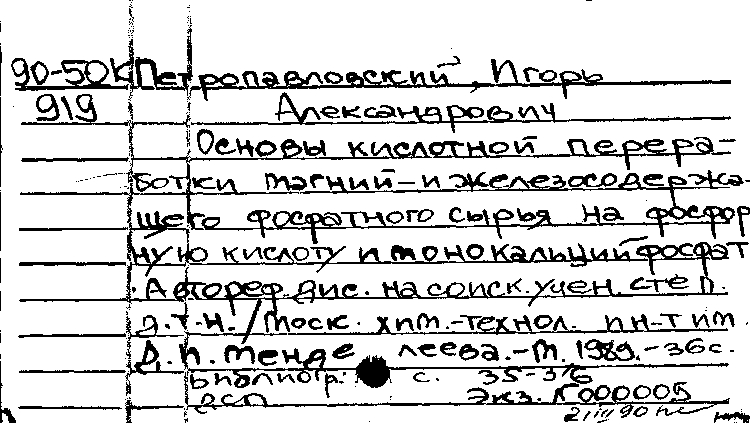 90-50К Петропавловский, Игорь
919 Александрович
Основы кислотной перера-
ботки магний-и железосодержа-
щего фосфатного сырья на фосфор
ную кислоту и монокальцийфосфат
. Автореф. дис. на соиск. учен. степ.
д.т.н. / Моск. хим.-технол. ин-т им.
Д.И. Менде леева.-М. 1989.-36с.
Библиогр.: с. 35-36
ДСП Экз. N000005
21 III 90